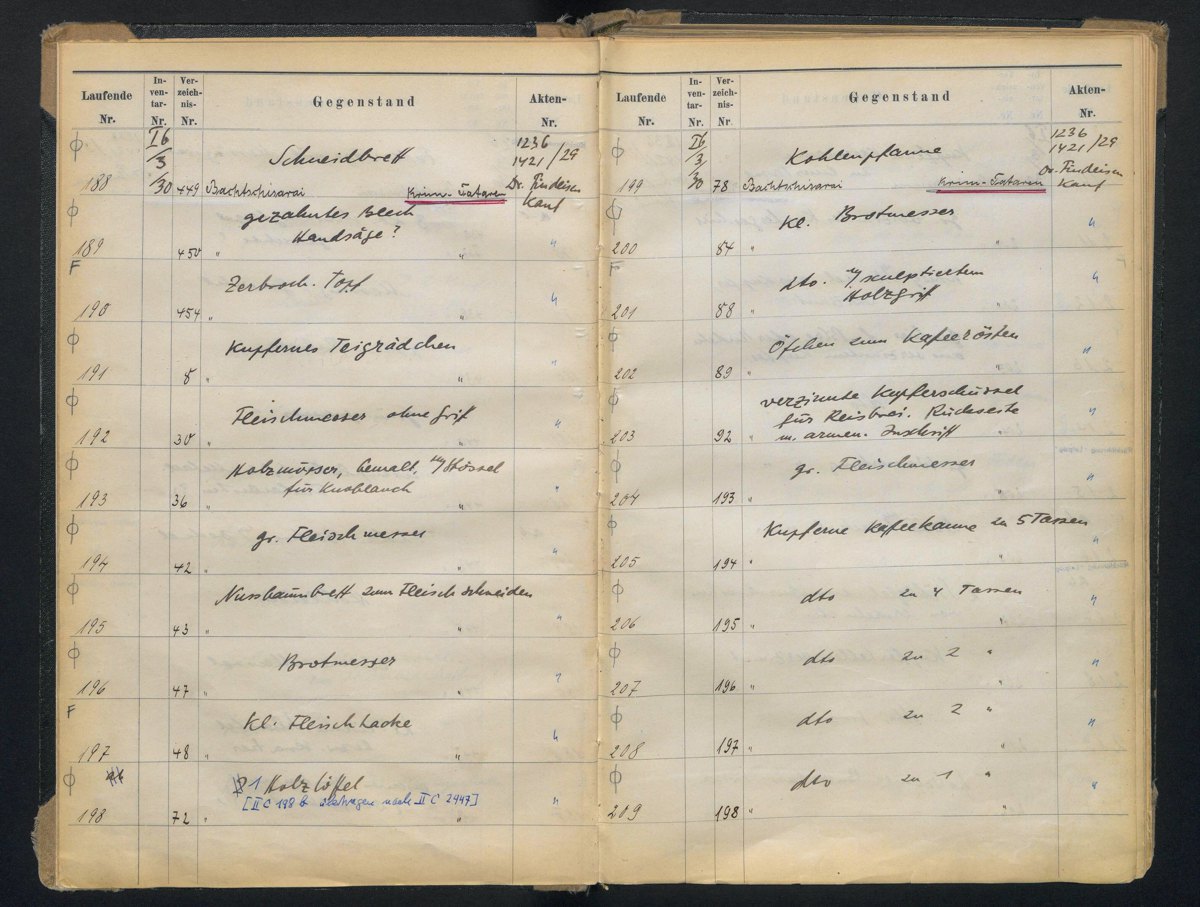 Laufende Nr.
In-ven-tar-Nr.
Ver-zeich-nis-Nr.
Gegenstand
Akten-Nr.
188 I6/3/30 449 Schneidbrett 1236
1421/29
Bachtschisarai Krim-Tataren Dr. Findeisen
Kauf
189 450 gezahntes Blech
Handsäge?
" " "
F
190 454 Zerbroch. Topf
" " "
191 8 Kupfernes Teigrädchen
" " "
192 30 Fleischmesser ohne Grif
" " "
193 36 Holzmörser, bemalt, m/Stössel
für Knoblauch
" " "
194 42 gr. Fleischmesser
" " "
195 43 Nussbaumbrett zum Fleischschneiden
" " "
196 47 Brotmesser
" " "
F
197 48 Kl. Fleischhacke
" " "
198 72 1 Holzlöffel
[II C 198 b übertragen nach II C 2947]
" " "
Laufende Nr.
In-ven-tar-Nr.
Ver-zeich-nis-Nr.
Gegenstand
Akten-Nr.
199 I6/3/30 78 Kohlenpfanne 1236
1421/29
Bachtschisarai Krim-Tataren Dr. Findeisen
Kauf
200 84 Kl. Brotmesser
" " "
F
201 88 dto. m/skulptiertem
Holzgrif
" " "
202 89 Öfchen zum Kafeerösten
" " "
203 92 verzinnte Kupferschüssel
für Reisbrei. Rückseite
m. armen. Inschrift
" "
204 193 gr. Fleischmesser
" " "
205 194 Kupferne Kafeekanne zu 5 Tassen
" " "
206 195 dto zu 4 Tassen
" " "
207 196 dto zu 2 "
" " "
208 197 dto zu 2 "
" " "
209 198 dto zu 1 "
" " "